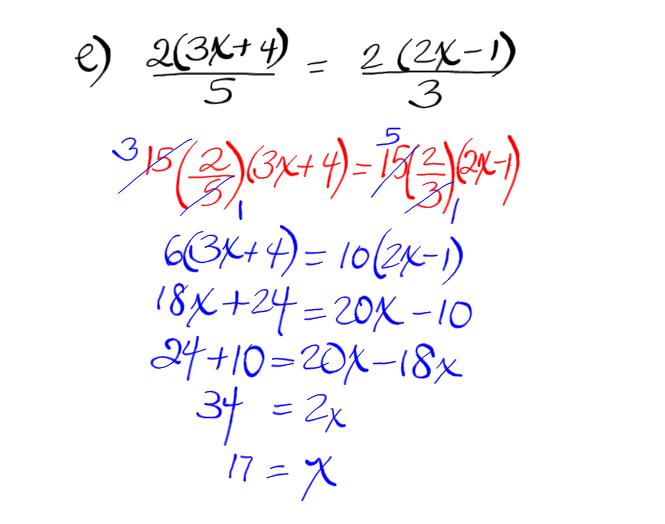 e) 2(3x+4)/5 = 2(2x-1)/3
3 15(2/5)(3x+4) = 5 15(2/3)(2x-1)
1 1
6(3x+4) = 10(2x-1)
18x+24 = 20x-10
24+10 = 20x-18x
34 = 2x
17 = x